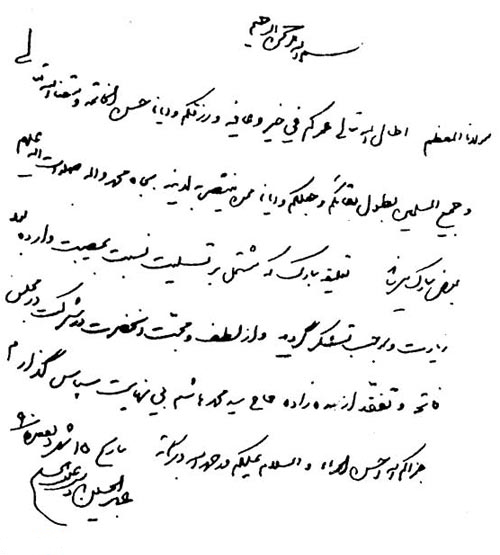 بسم الله الرحمن الرحیم
مولانا المعظم اطال الله تعالی عمرکم فی خیر و عافیة و رزقکم و ایانا حسن الخاتمة و متعنا الله تعالی
و جمیع المسلمین بطول بقائکم و جعلکم و ایانا ممن ینتصر به لدینه بجاه محمد و اله صلوات الله علیهم
بعرض مبارک میرساند تعلیقه مبارک که مشتمل بر تسلیت نسبت بمصیبت وارده بود
زیارت و موجب تشکر گردید و از لطف و محبت و شرکت در مجلس
فاتحه و تفقد از بنده زاده حاج سید محمد هاشم بی نهایت سپاس گذارم
جزاکم الله احسن الجزاء و السلام علیکم و رحمة الله و برکاته
بتاریخ ۱۵ شهر ۹۰
عبد الحسین